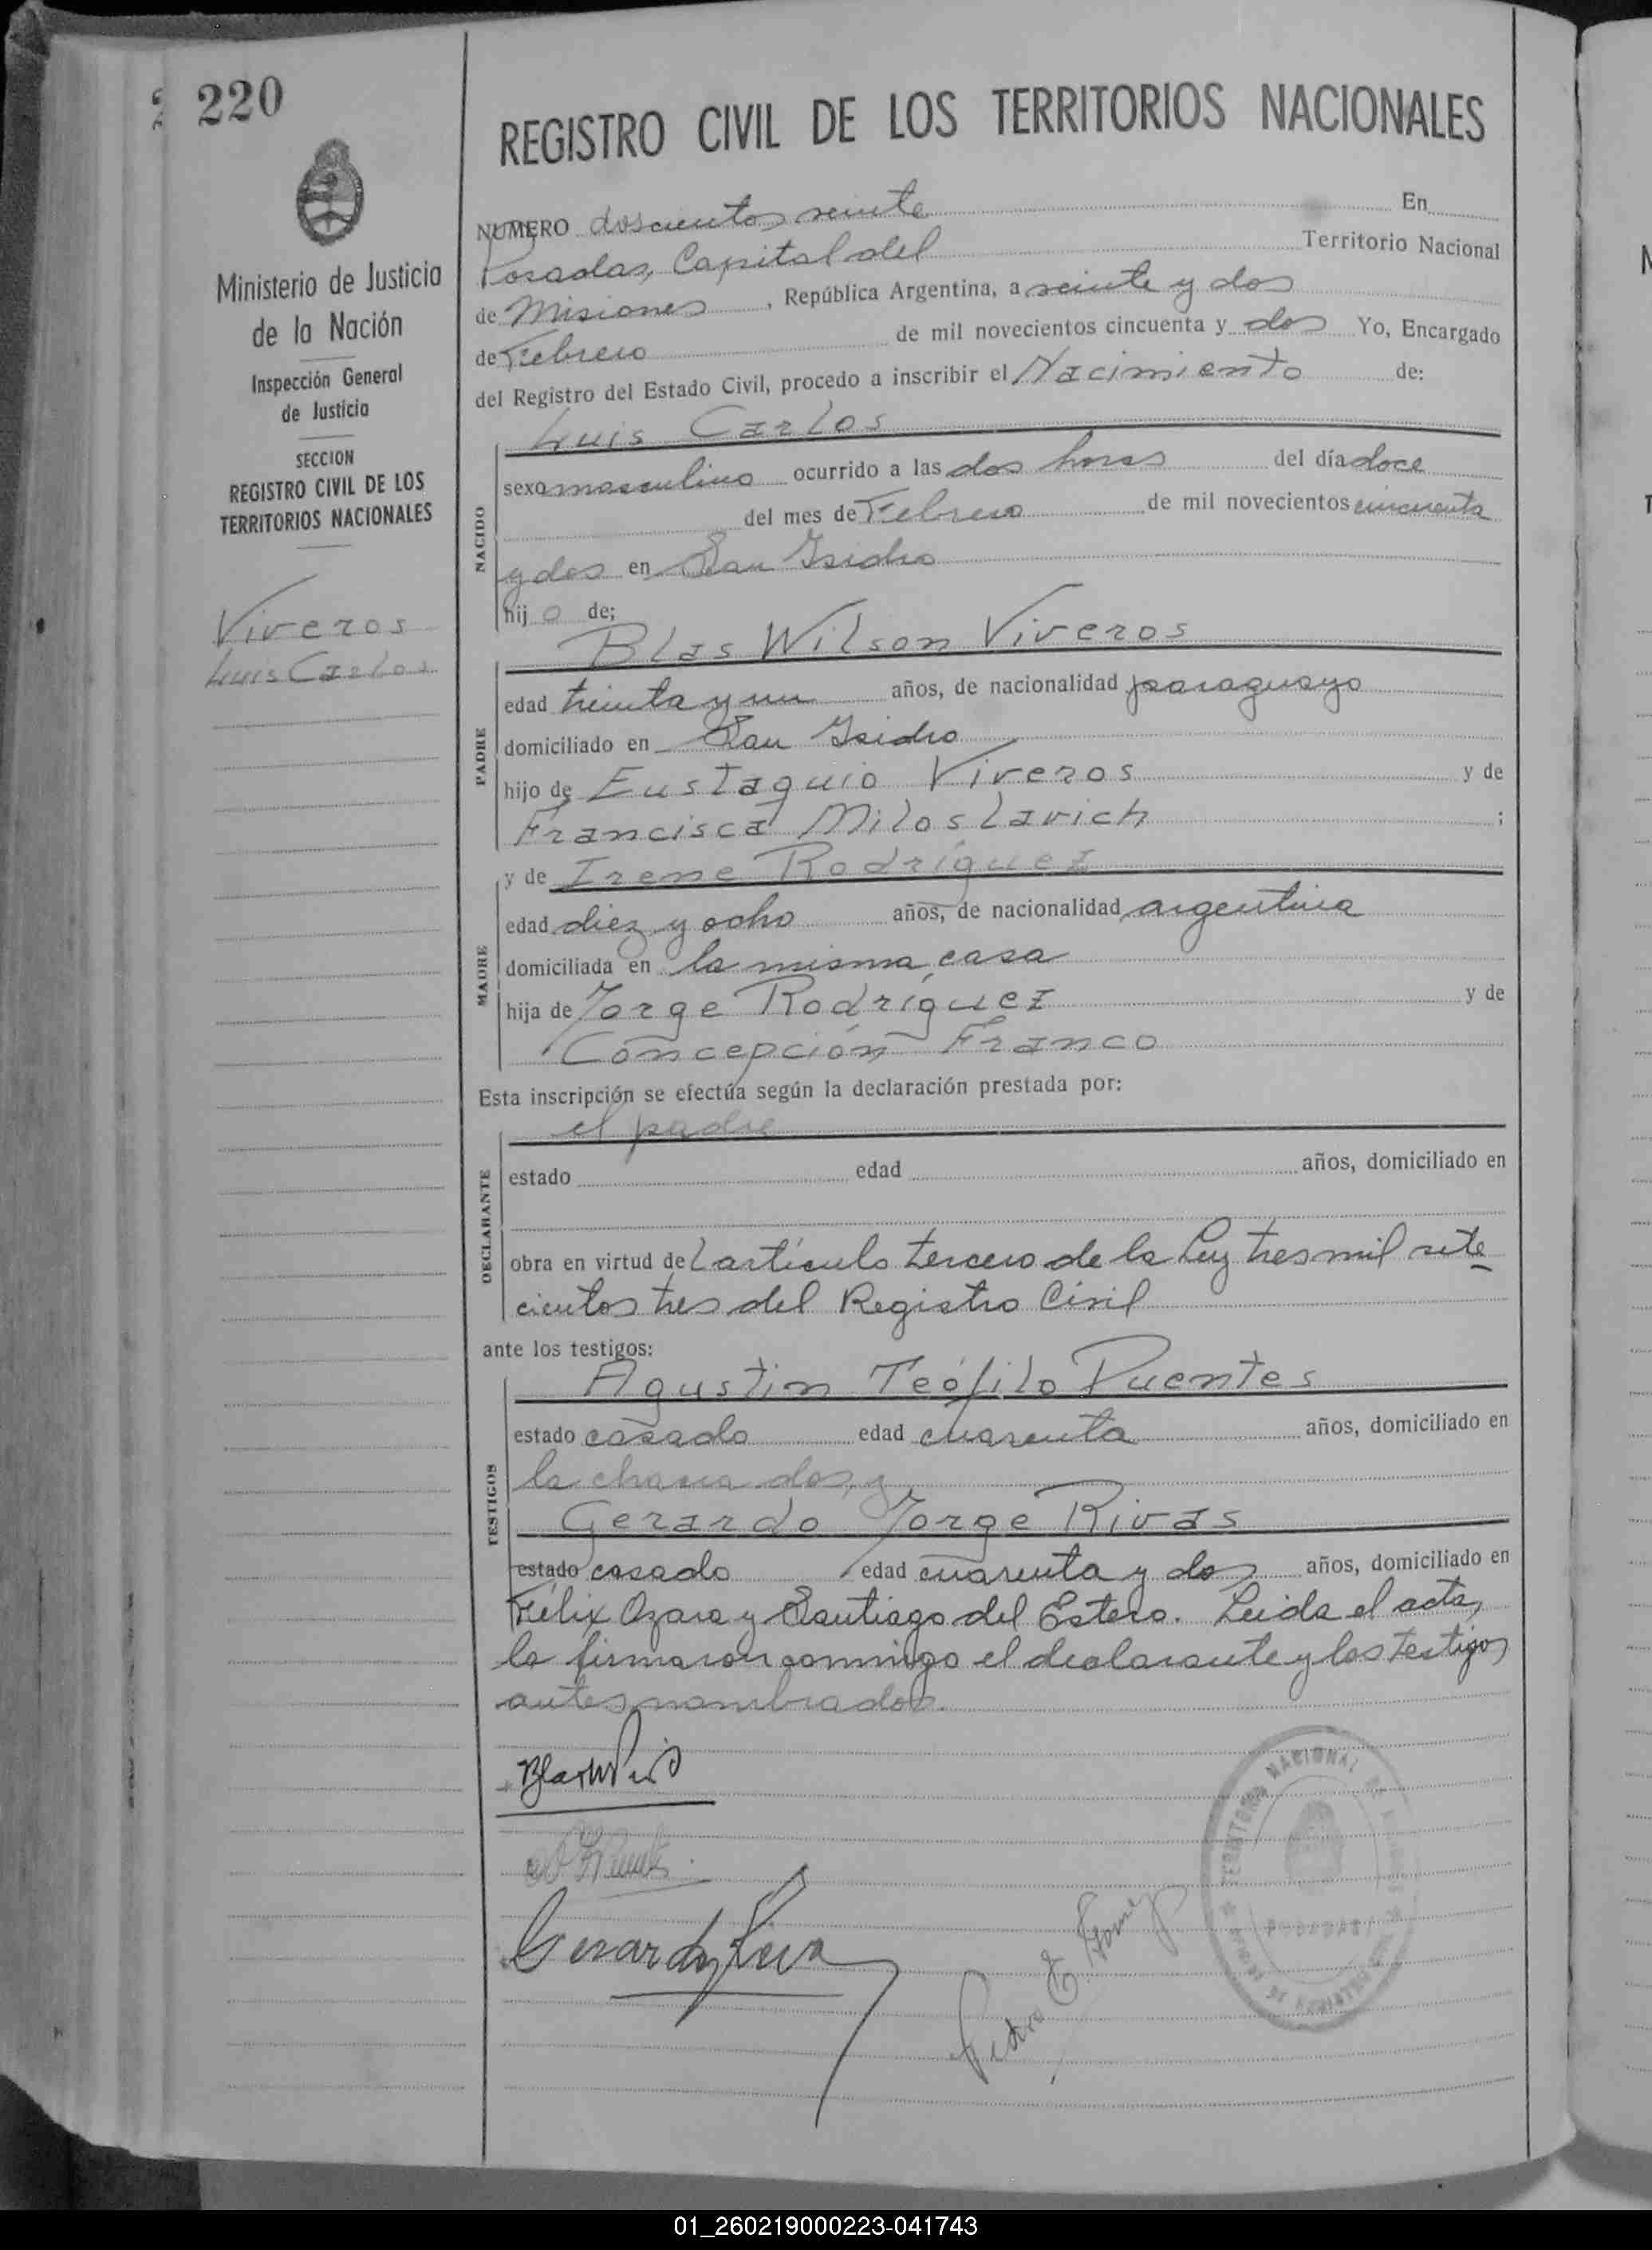 220
Ministerio de Justicia
de la Nación
Inspección General
de Justicia
SECCION
REGISTRO CIVIL DE LOS
TERRITORIOS NACIONALES
Viveros
Luis Carlos
REGISTRO CIVIL DE LOS TERRITORIOS NACIONALES
NUMERO doscientos veinte En
Posadas, Capital del Territorio Nacional
de Misiones, República Argentina, a veinte y dos
de Febrero de mil novecientos cincuenta y dos Yo, Encargado
del Registro del Estado Civil, procedo a inscribir el Nacimiento de:
NACIDO
Luis Carlos
sexo masculino ocurrido a las dos horas del día doce
del mes de Febrero de mil novecientos cincuenta
y dos en San Isidro
hijo de;
PADRE
Blas Wilson Viveros
edad treinta y un años, de nacionalidad paraguayo
domiciliado en San Isidro
hijo de Eustaquio Viveros y de
Francisca Miloslavich ;
MADRE
y de Irene Rodríguez
edad diez y ocho años, de nacionalidad argentina
domiciliada en la misma casa
hija de Jorge Rodríguez y de
Concepción Franco
Esta inscripción se efectúa según la declaración prestada por:
DECLARANTE
el padre
estado edad años, domiciliado en
obra en virtud del artículo tercero de la Ley tres mil sete
cientos tres del Registro Civil
ante los testigos:
TESTIGOS
Agustin Teófilo Puentes
estado casado edad cuarenta años, domiciliado en
la chacra dos, y
Gerardo Jorge Rivas
estado casado edad cuarenta y dos años, domiciliado en
Félix Azara y Santiago del Estero. Leida el acta,
la firmaron conmigo el declarante y los testigos
antes nombrados.
Pedro E. Gomez
TERRITORIO NACIONAL DE MISIONES
POSADAS
01_260219000223-041743